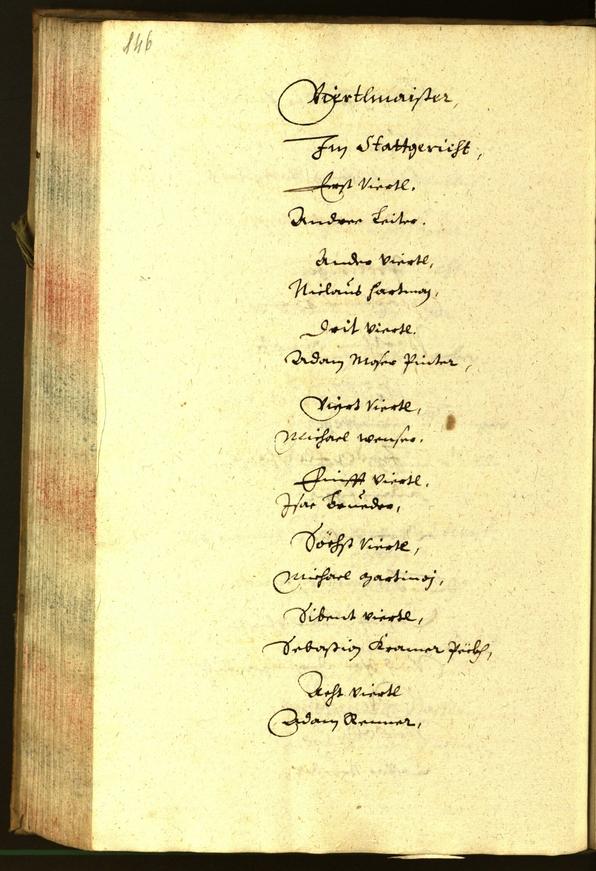 146
Viertlmaister,
Im Stattgericht,
Erst Viertl.
Andree Leiter.
Ander viertl,
Niclaus Hartman,
Drit viertl.
Adam Moser Pinter,
Viert Viertl,
Michael Wenser.
Finfft viertl.
Isac Brueder,
Söchst Viertl,
Michael Martinoj,
Sibent viertl,
Sebastian Kramer
Acht viertl
Adam Renner,